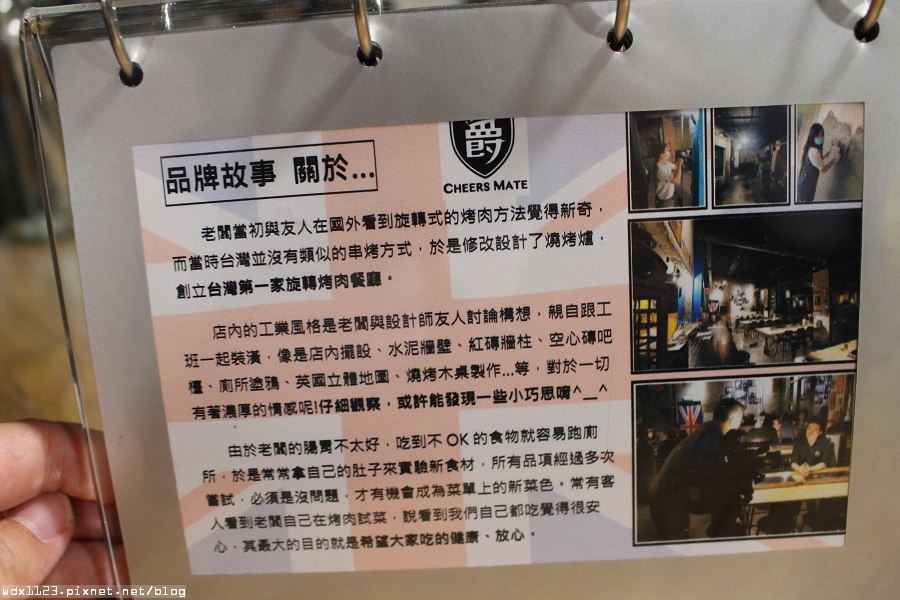 爵
CHEERS MATE
品牌故事 關於...
老闆當初與友人在國外看到旋轉式的烤肉方法覺得新奇，
而當時台灣並沒有類似的串烤方式，於是修改設計了燒烤爐，
創立台灣第一家旋轉烤肉餐廳。
店內的工業風格是老闆與設計師友人討論構想，親自跟工
班一起裝潢，像是店內擺設、水泥牆壁、紅磚牆柱、空心磚吧
檯、廁所塗鴉、英國立體地圖、燒烤木桌製作...等，對於一切
有著濃厚的情感呢!仔細觀察，或許能發現一些小巧思唷^__^
由於老闆的腸胃不太好，吃到不OK的食物就容易跑廁
所，於是常常拿自己的肚子來實驗新食材，所有品項經過多次
嘗試，必須是沒問題，才有機會成為菜單上的新菜色。常有客
人看到老闆自己在烤肉試菜，說看到我們自己都吃覺得很安
心，其最大的目的就是希望大家吃的健康、放心。
wdx1123.pixnet.net/blog